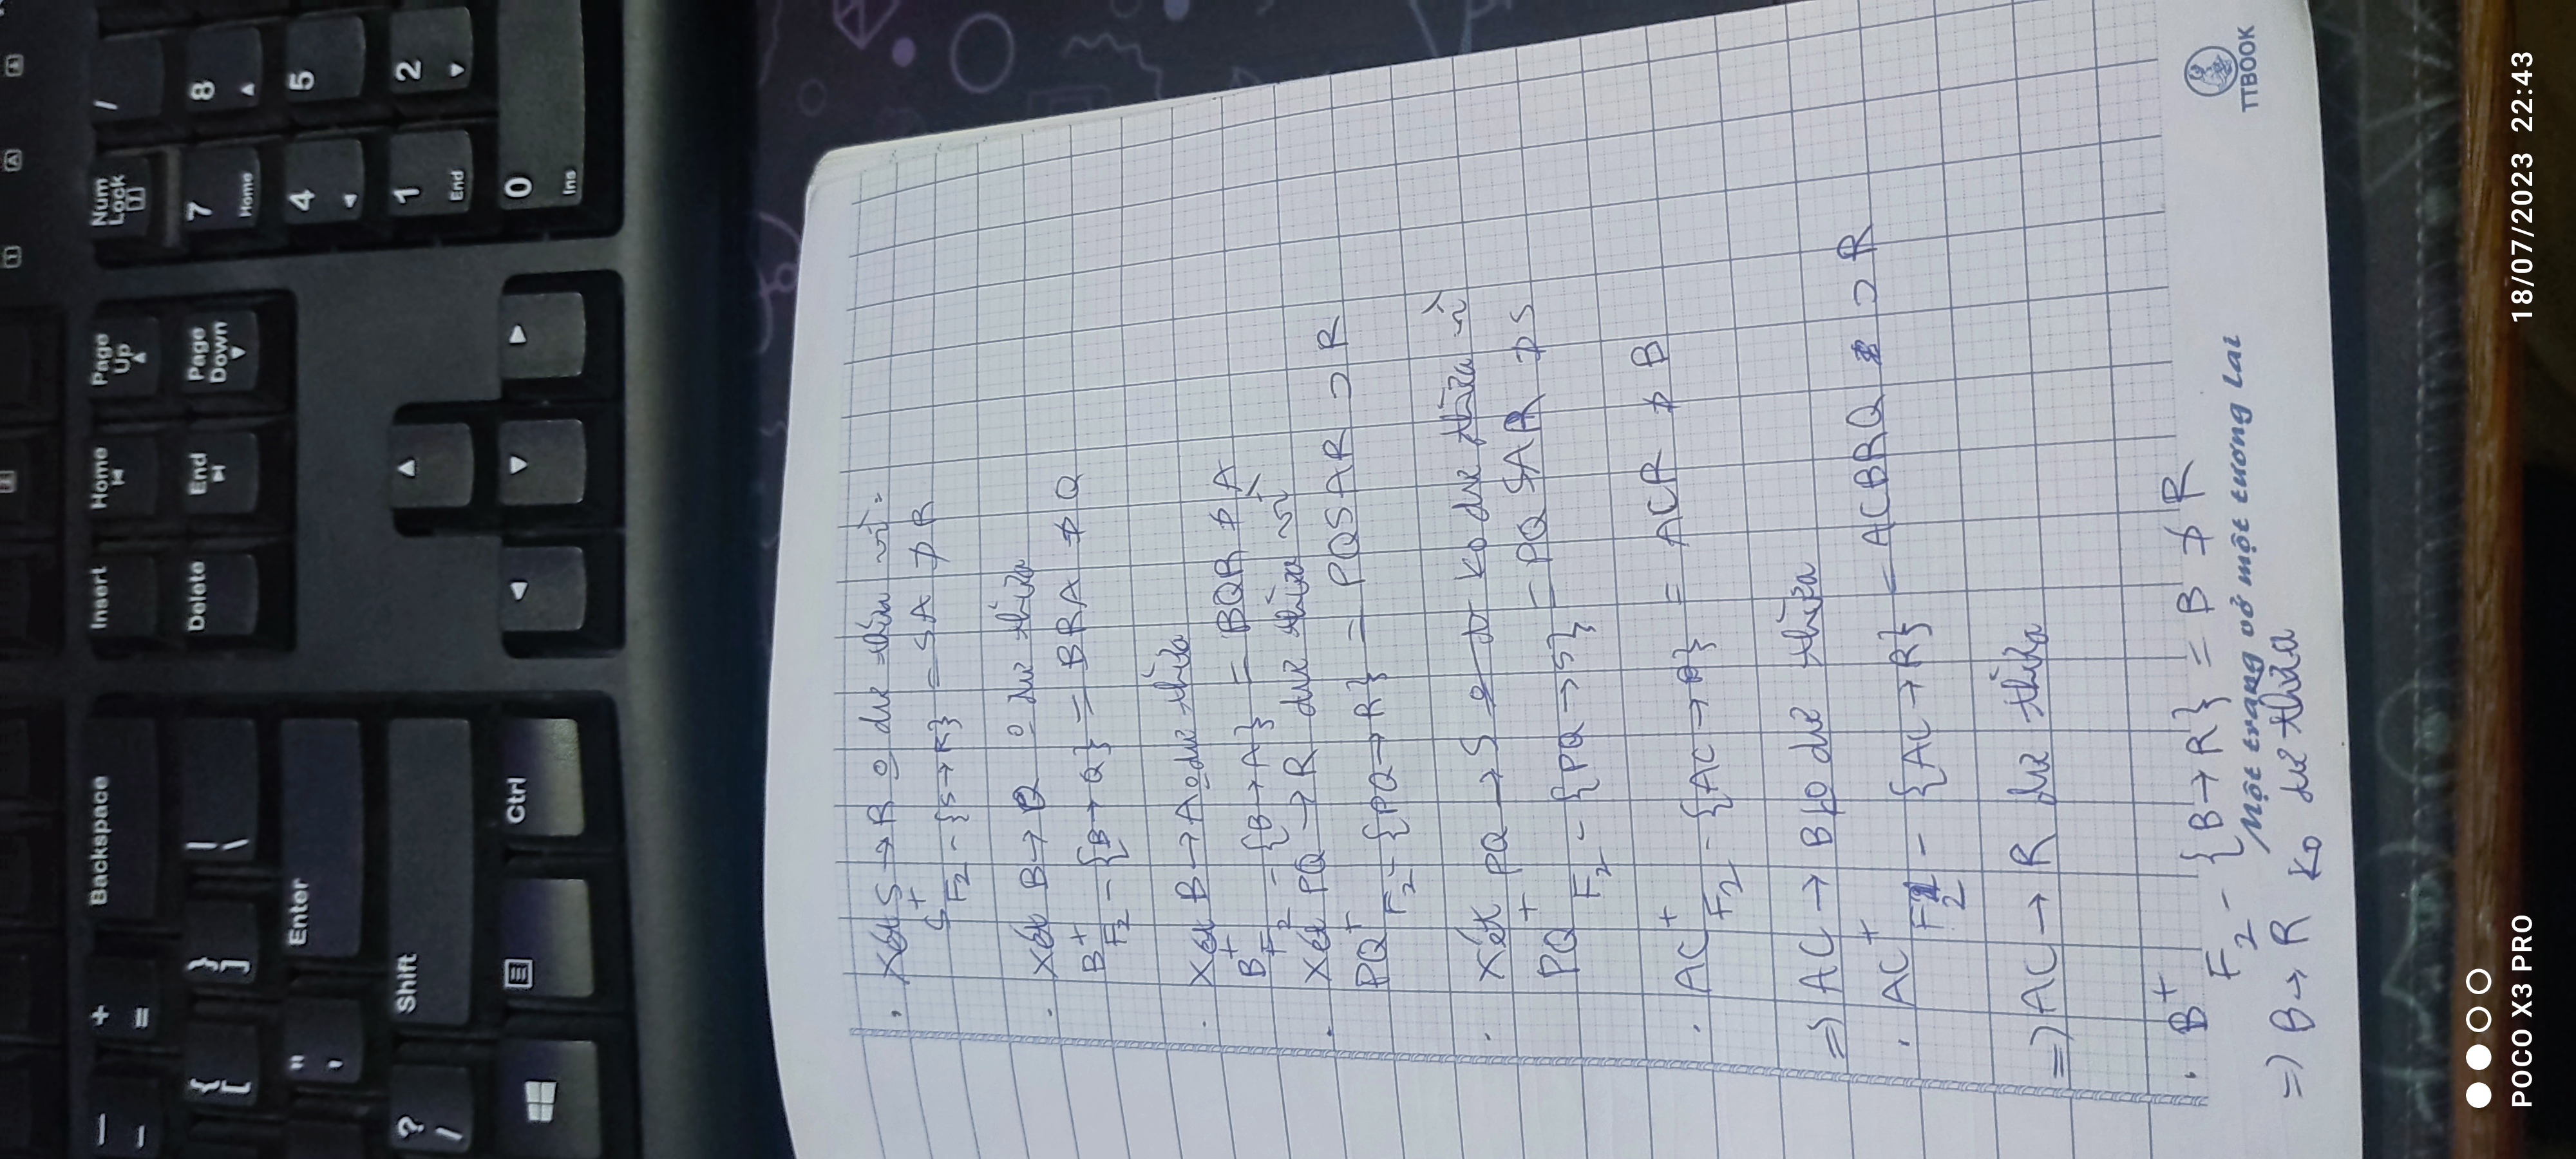 — + Backspace Insert Home Page Up Num Lock /
- =
{ } | Delete End Page Down 7 8
[ ] \ Home
" Enter 4 5
'
? Shift 1 2
/ End
Ctrl 0
Ins
. Xét S → R o dư thừa vì:
S+ F2 - {S → R} = SA ⊅ R
. Xét B → Q o dư thừa
B+ F2 - {B → Q} = BRA ⊅ Q
. Xét B → A o dư thừa
B+ F2 - {B → A} = BQR ⊅ A
. Xét PQ → R dư thừa vì
PQ+ F2 - {PQ → R} = PQSAR ⊃ R
. Xét PQ → S ko dư thừa vì
PQ+ F2 - {PQ → S} = PQSAR ⊅ S
. AC+ F2 - {AC → } = ACR ⊅ B
=> AC → B ko dư thừa
. AC+ F2 - {AC → R} = ACBRQ ⊃ R
=> AC → R dư thừa
. B+ F2 - {B → R} = B ⊅ R
Một trang vở một tương lai
TTBOOK
=> B → R ko dư thừa
POCO X3 PRO 18/07/2023 22:43